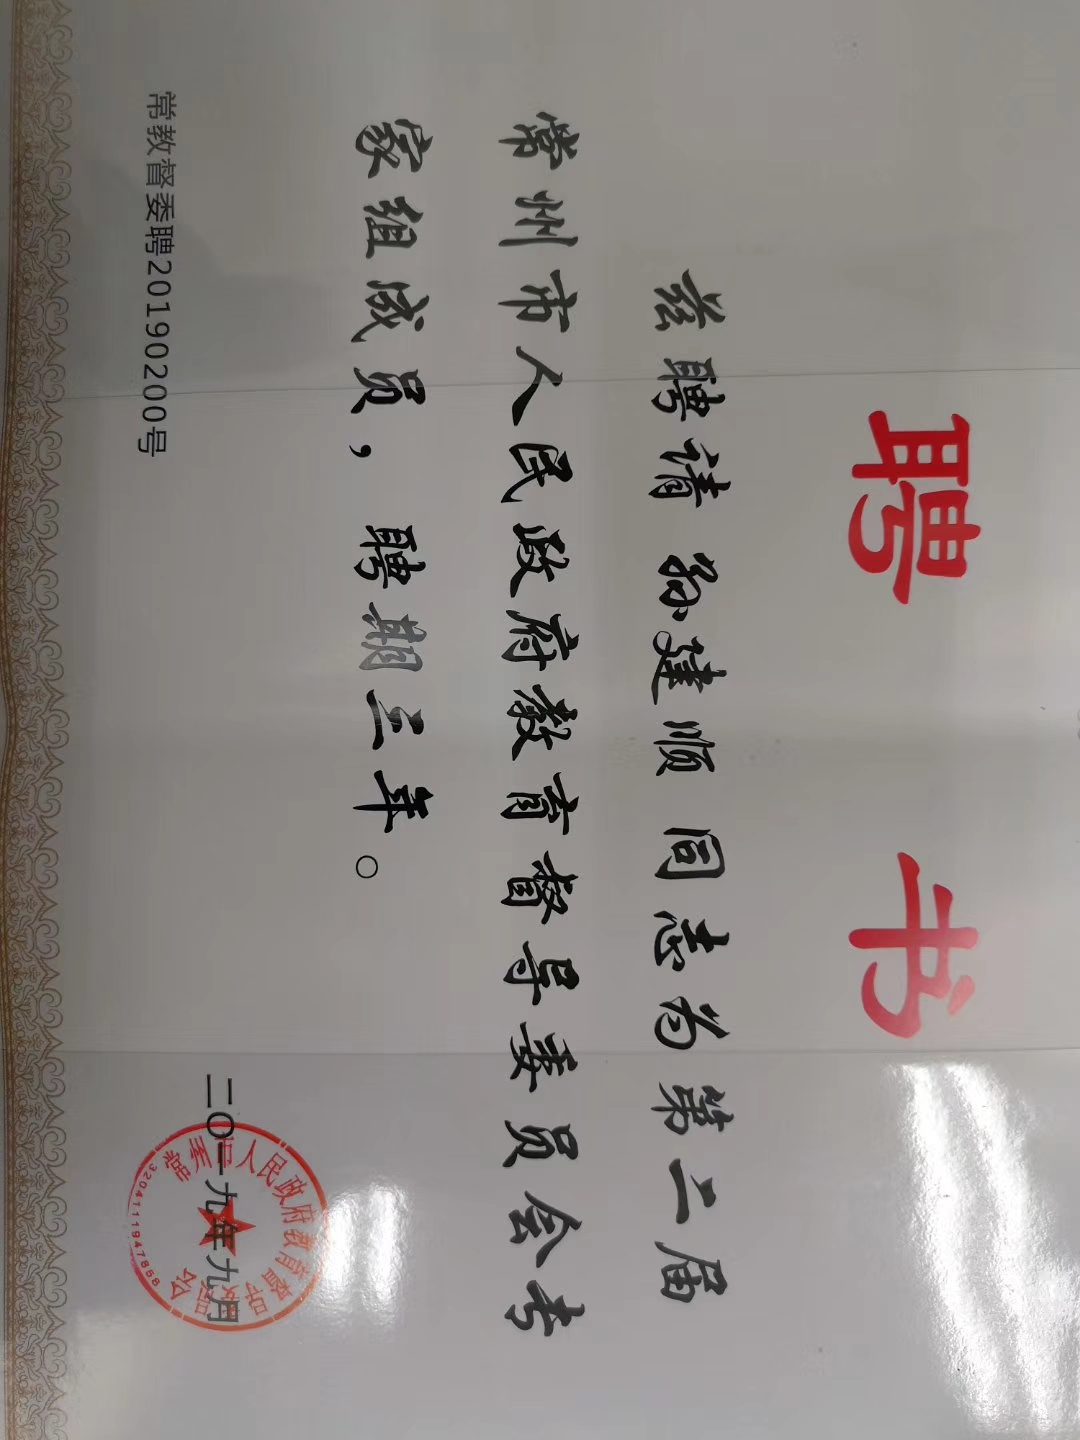 聘书
兹聘请 孙建顺 同志为第二届
常州市人民政府教育督导委员会专
家组成员，聘期三年。
常州市人民政府教育督导委员会
二〇一九年九月
3204111947858
常教督委聘20190200号